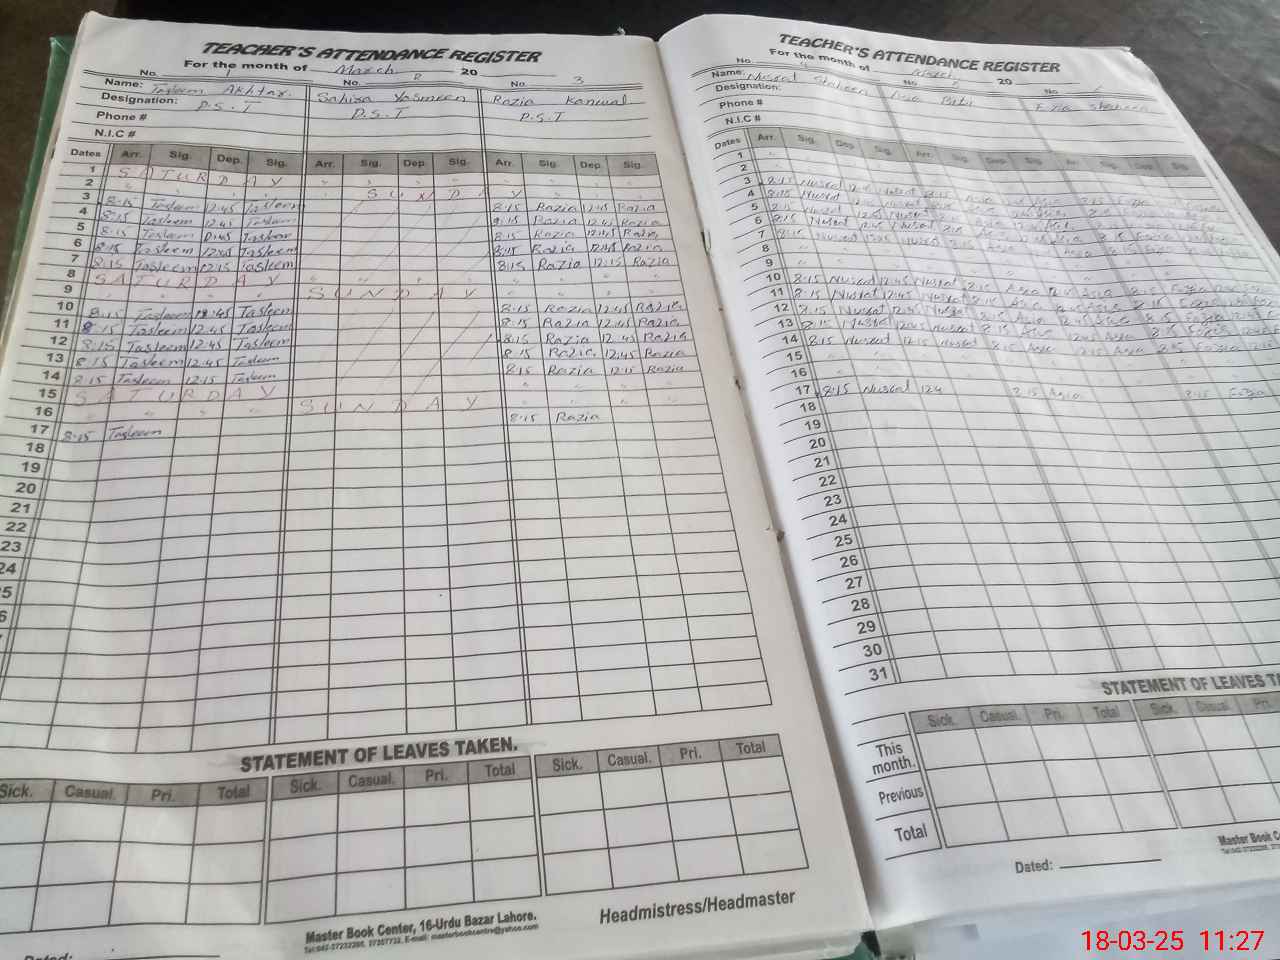 TEACHER'S ATTENDANCE REGISTER
For the month of March 20
No. 1 No. 2 No. 3
Name: Tasleem Akhtar. Sabira Yasmeen Razia Kanwal
Designation: P.S.T P.S.T P.S.T
Phone #
N.I.C #
Dates Arr. Sig. Dep. Sig. Arr. Sig. Dep. Sig. Arr. Sig. Dep. Sig.
1 SATURDAY
2 SUNDAY
3 8:15 Tasleem 12:45 Tasleem 8:15 Razia 12:45 Razia
4 8:15 Tasleem 12:45 Tasleem 8:15 Razia 12:45 Razia
5 8:15 Tasleem 12:45 Tasleem 8:15 Razia 12:45 Razia
6 8:15 Tasleem 12:45 Tasleem 8:15 Razia 12:45 Razia
7 8:15 Tasleem 12:15 Tasleem 8:15 Razia 12:15 Razia
8 SATURDAY
9 SUNDAY
10 8:15 Tasleem 12:45 Tasleem 8:15 Razia 12:45 Razia
11 8:15 Tasleem 12:45 Tasleem 8:15 Razia 12:45 Razia
12 8:15 Tasleem 12:45 Tasleem 8:15 Razia 12:45 Razia
13 8:15 Tasleem 12:45 Tasleem 8:15 Razia 12:45 Razia
14 8:15 Tasleem 12:15 Tasleem 8:15 Razia 12:15 Razia
15 SATURDAY
16 SUNDAY
17 8:15 Tasleem 8:15 Razia
18
19
20
21
22
23
24
STATEMENT OF LEAVES TAKEN.
Sick. Casual. Pri. Total Sick. Casual. Pri. Total Sick. Casual. Pri. Total
Master Book Center, 16-Urdu Bazar Lahore.
Headmistress/Headmaster
Dated:
TEACHER'S ATTENDANCE REGISTER
For the month of March 20
No. 4 No. 5 No. 6
Name: Nusrat Shaheen Asia Bibi Fozia Shaheen
Designation:
Phone #
N.I.C #
Dates Arr. Sig. Dep. Sig. Arr. Sig. Dep. Sig. Arr. Sig. Dep. Sig.
1
2
3 8:15 Nusrat 12:45 Nusrat 8:15
4 8:15 Nusrat
5 8:15 Nusrat 12:45 Nusrat 8:15
6 8:15 Nusrat 12:45 Nusrat 8:15
7 8:15 Nusrat 12:15 Nusrat 8:15
8
9
10 8:15 Nusrat 12:45 Nusrat 8:15 Asia 12:45 Asia 8:15 Fozia
11 8:15 Nusrat 12:45 Nusrat 8:15 Asia 12:45 Asia 8:15 Fozia
12 8:15 Nusrat 12:45 Nusrat 8:15 Asia 12:45 Asia 8:15 Fozia
13 8:15 Nusrat 12:45 Nusrat 8:15 Asia 12:45 Asia 8:15 Fozia
14 8:15 Nusrat 12:15 Nusrat 8:15 Asia 12:15 Asia 8:15 Fozia
15
16
17 8:15 Nusrat 124 8:15 Asia 8:15 Fozia
18
19
20
21
22
23
24
25
26
27
28
29
30
31
STATEMENT OF LEAVES
Sick. Casual. Pri. Total Sick. Casual. Pri.
This month.
Previous
Total
Dated:
Master Book
18-03-25 11:27